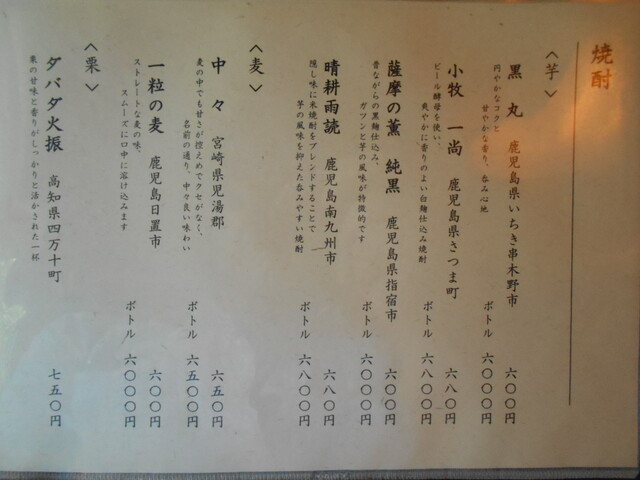 焼酎
〈芋〉
黒丸 鹿児島県いちき串木野市 六〇〇円
円やかなコクと
甘やかな香り、呑み心地
ボトル 六〇〇〇円
小牧 一尚 鹿児島県さつま町 六八〇円
ビール酵母を使い、
爽やかに香りのよい白麹仕込み焼酎
ボトル 六八〇〇円
薩摩の薫 純黒 鹿児島県指宿市 六〇〇円
昔ながらの黒麹仕込み、
ガツンと芋の風味が特徴的です
ボトル 六〇〇〇円
晴耕雨読 鹿児島南九州市 六八〇円
隠し味に米焼酎をブレンドすることで
芋の風味を抑えた呑みやすい焼酎
ボトル 六八〇〇円
〈麦〉
中々 宮崎県児湯郡 六五〇円
麦の中でも甘さが控えめでクセがなく、
名前の通り、中々良い味わい
ボトル 六五〇〇円
一粒の麦 鹿児島日置市 六〇〇円
ストレートな麦の味、
スムーズに口中に溶け込みます
ボトル 六〇〇〇円
〈栗〉
ダバダ火振 高知県四万十町 七五〇円
栗の甘味と香りがしっかりと活かされた一杯